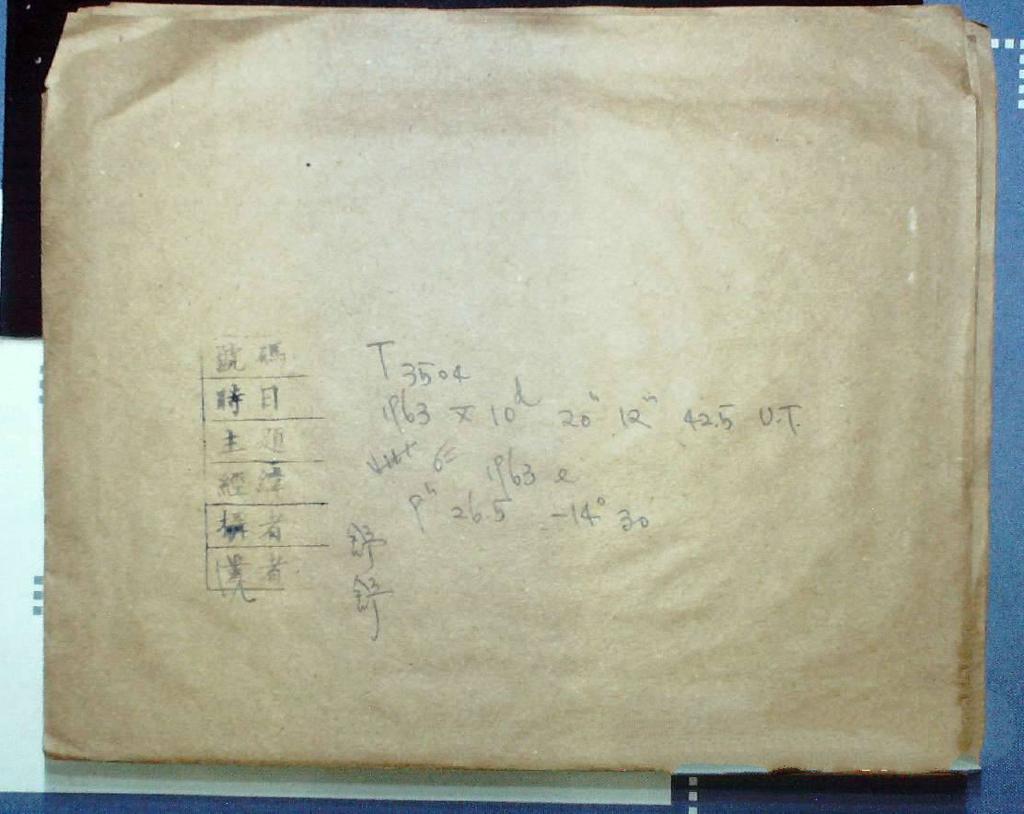 號碼 T 3504
時日 1963 X 10d 20h 12m 42.5 U.T.
主題 1963 e
經緯 9h 26.5 -14° 30
攝者 舒
舒